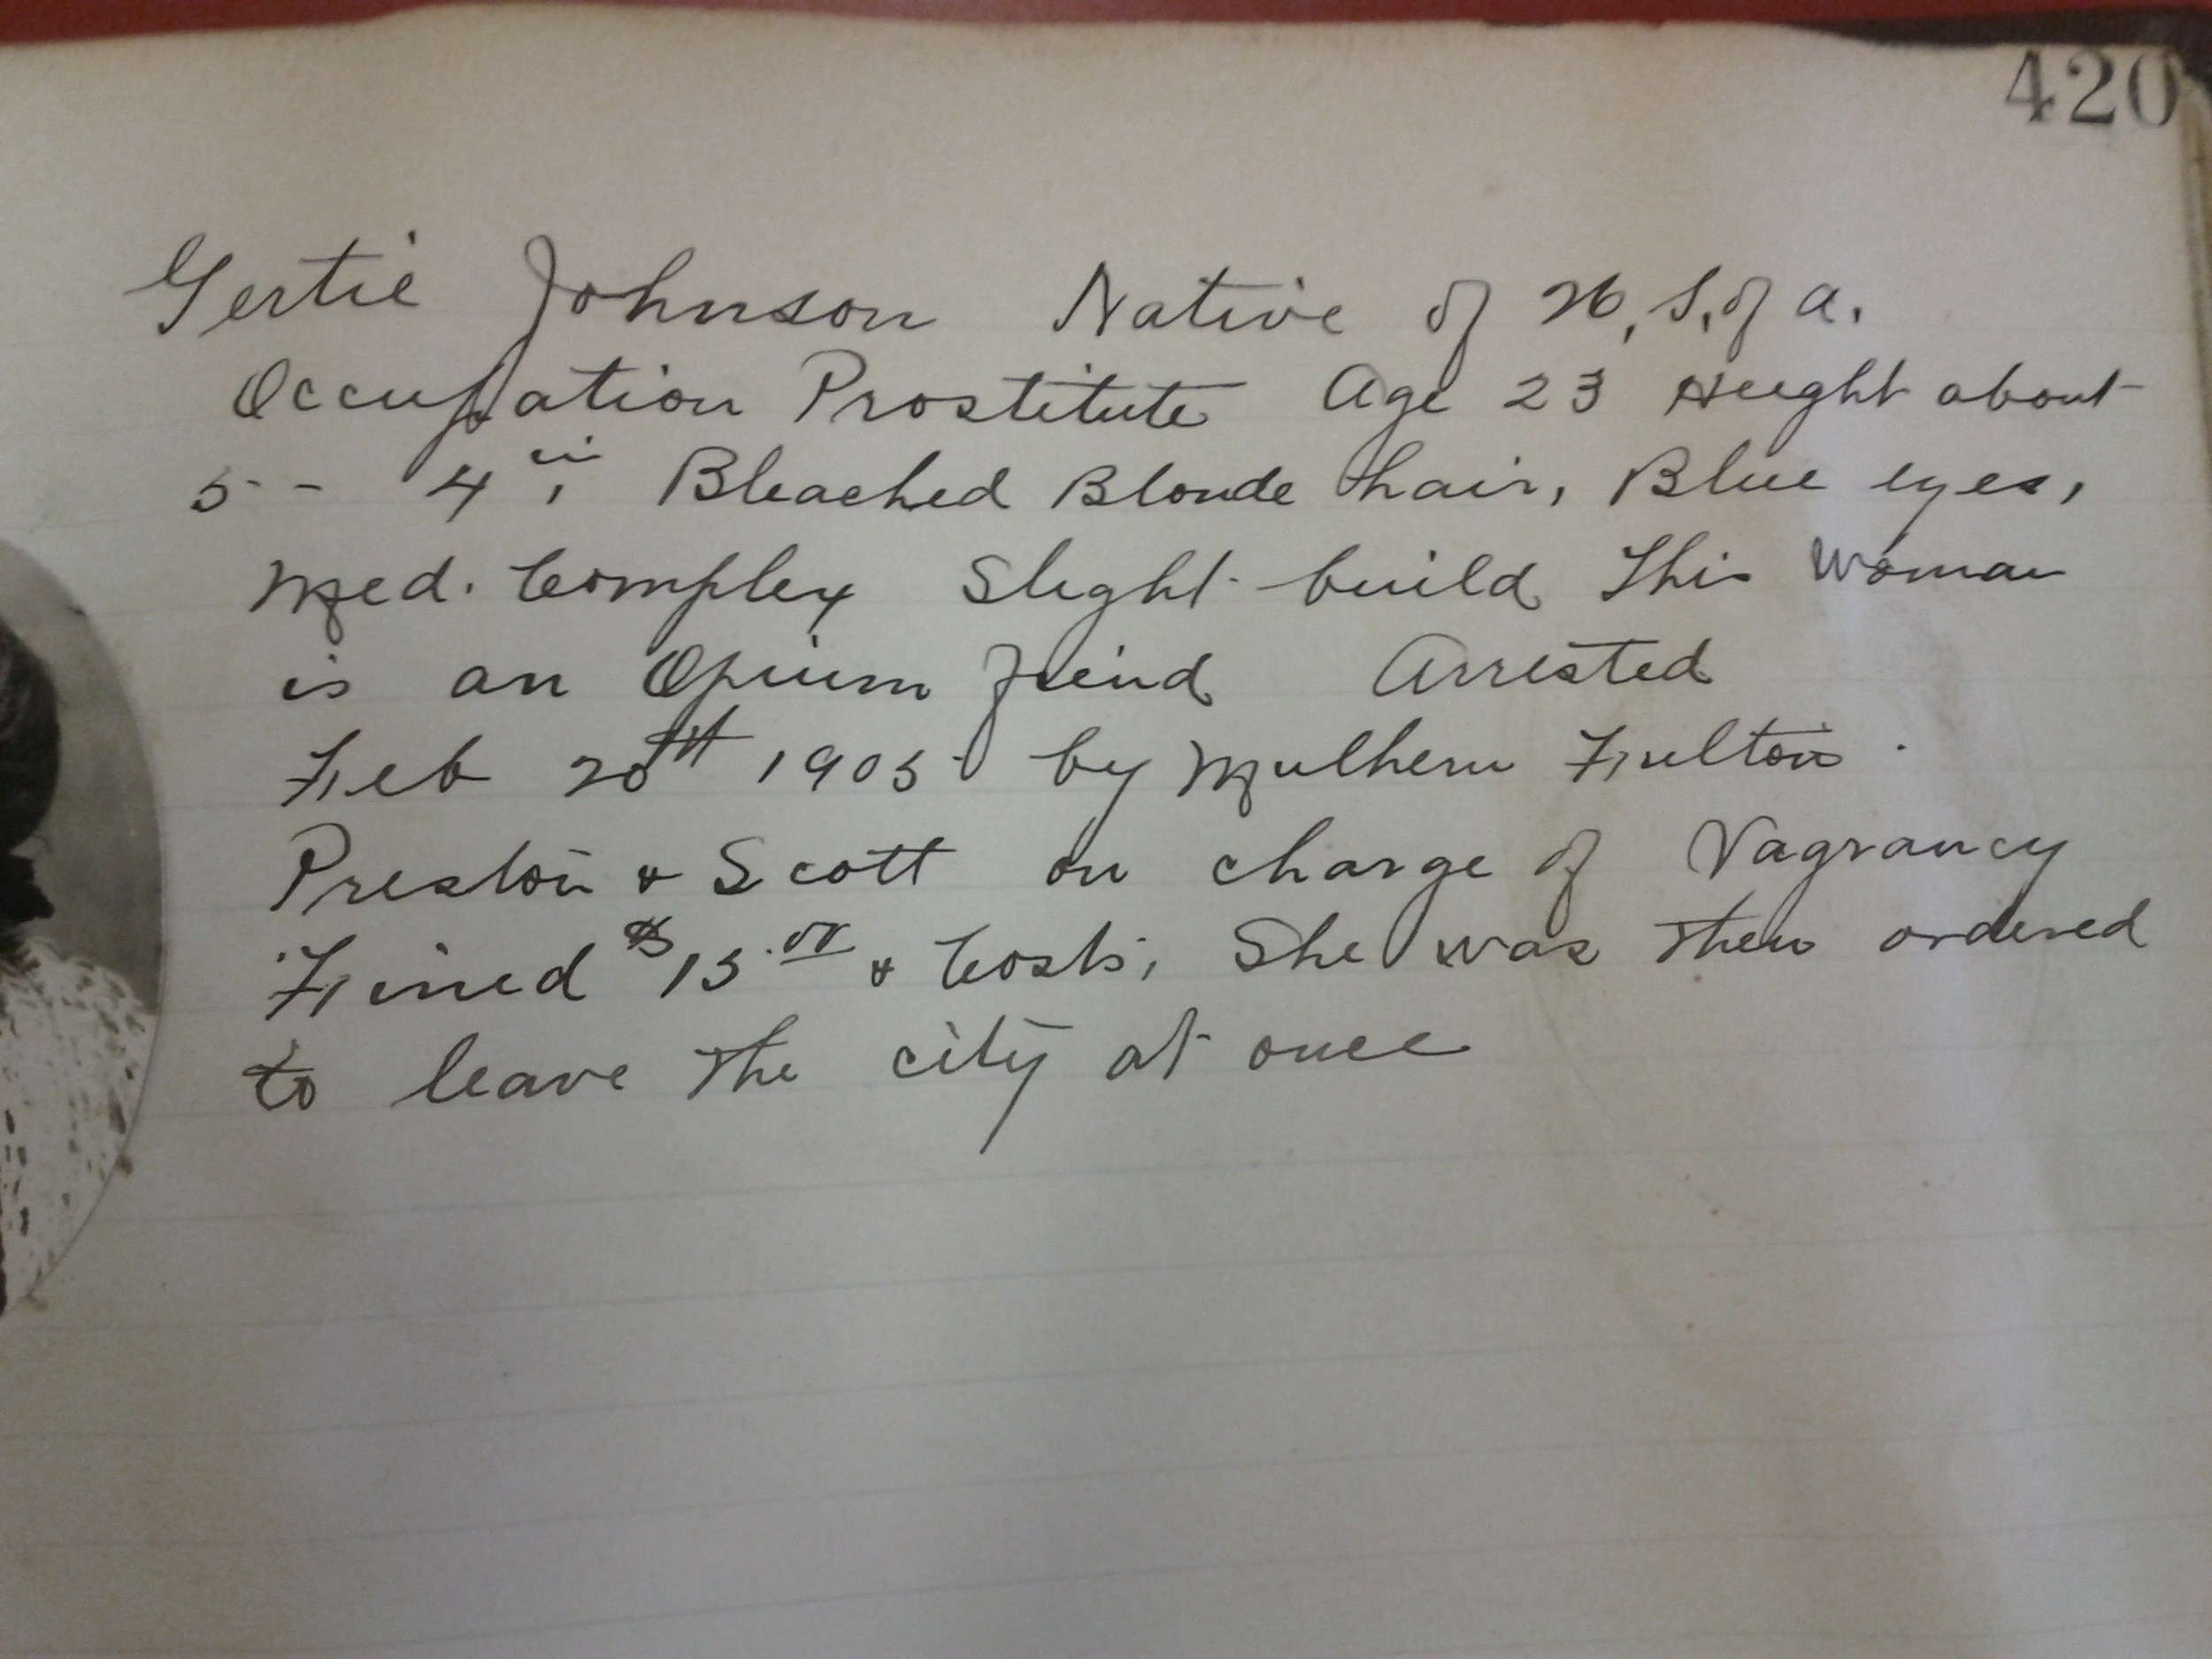 420
Gertie Johnson Native of U, S, of a.
Occupation Prostitute Age 23 Height about
5 - 4 in, Bleached Blonde hair, Blue eyes,
Med. Complex Slight build This Woman
is an Opium fiend Arrested
Feb 20th 1905 by Mulhern Fulton
Preston & Scott on charge of Vagrancy
Fined $15.00 & Costs, She was then ordered
to leave the city at once